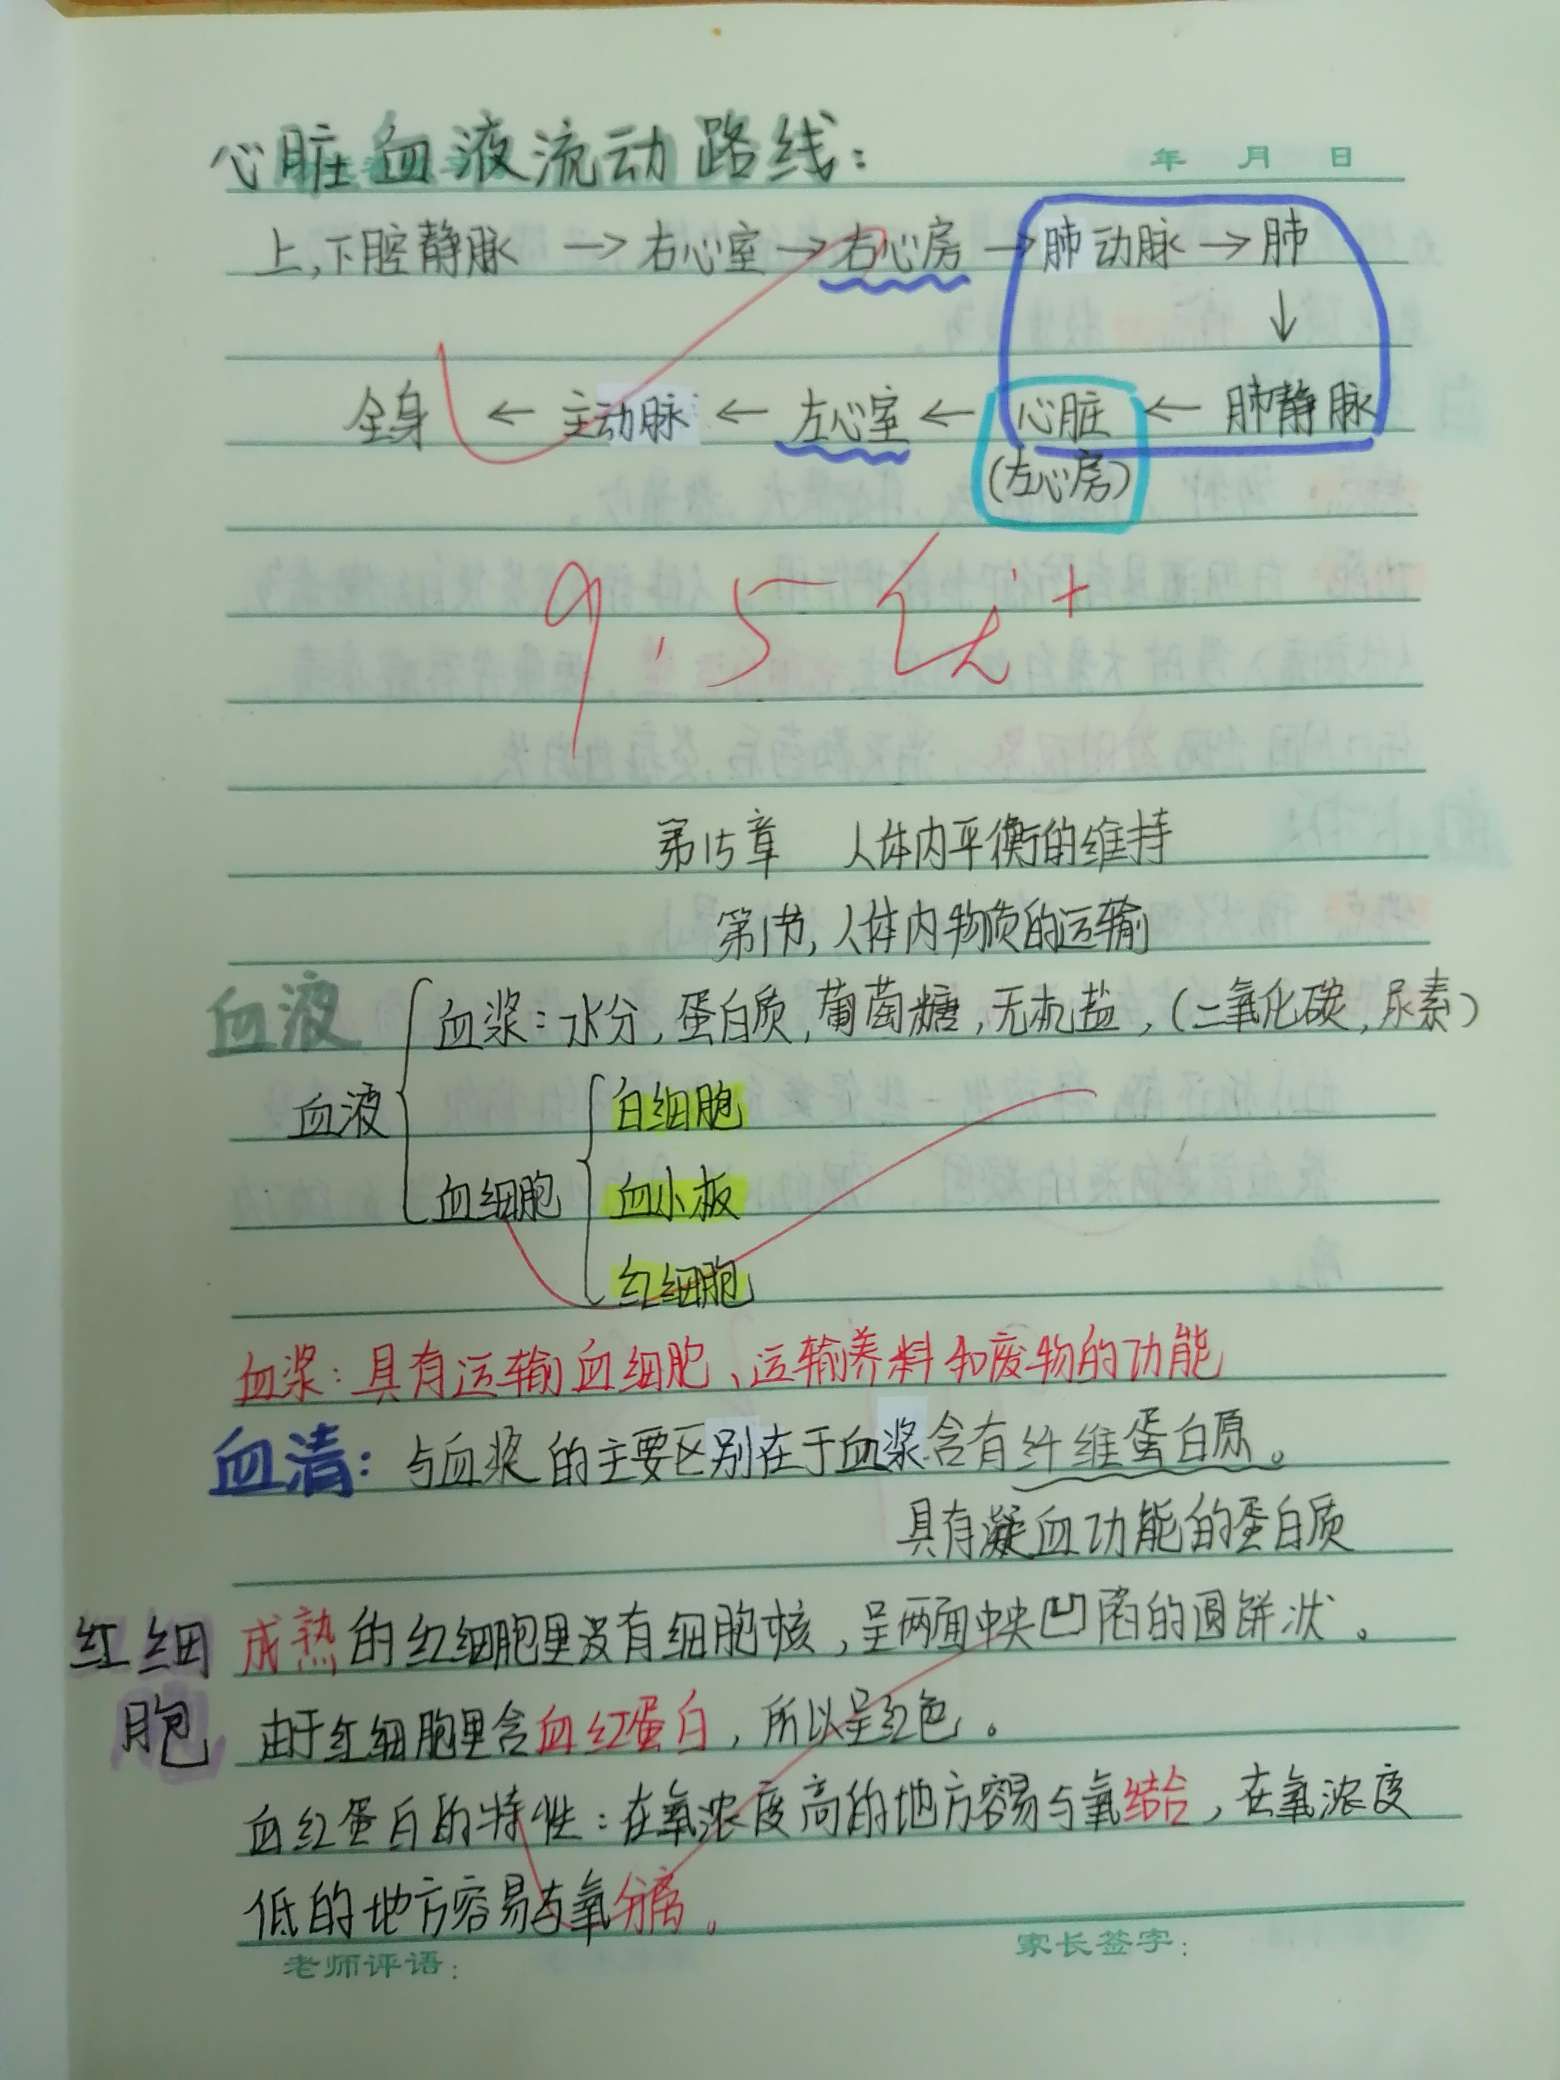 心脏血液流动路线：
年 月 日
上,下腔静脉 → 右心室 → 右心房 → 肺动脉 → 肺
↓
全身 ← 主动脉 ← 左心室 ← 心脏 ← 肺静脉
(左心房)
9.5
第15章 人体内平衡的维持
第1节,人体内物质的运输
血液
血浆：水分,蛋白质,葡萄糖,无机盐,(二氧化碳,尿素)
白细胞
血液
血细胞 血小板
红细胞
血浆：具有运输血细胞、运输养料和废物的功能
血清：与血浆的主要区别在于血浆含有纤维蛋白原。
具有凝血功能的蛋白质
红细胞 成熟的红细胞里没有细胞核,呈两面中央凹陷的圆饼状。
由于红细胞里含血红蛋白,所以呈红色。
血红蛋白的特性：在氧浓度高的地方容易与氧结合,在氧浓度
低的地方容易与氧分离。
老师评语： 家长签字：